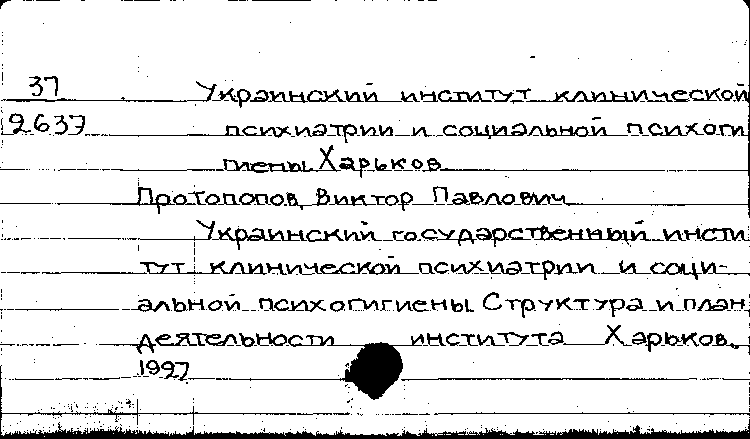 37 Украинский институт клинической
2637 психиатрии и социальной психоги
гиены Харьков
Протопопов, Виктор Павлович
Украинский государственный инсти
тут клинической психиатрии и соци-
альной психогигиены. Структура и план
деятельности института Харьков.
1997